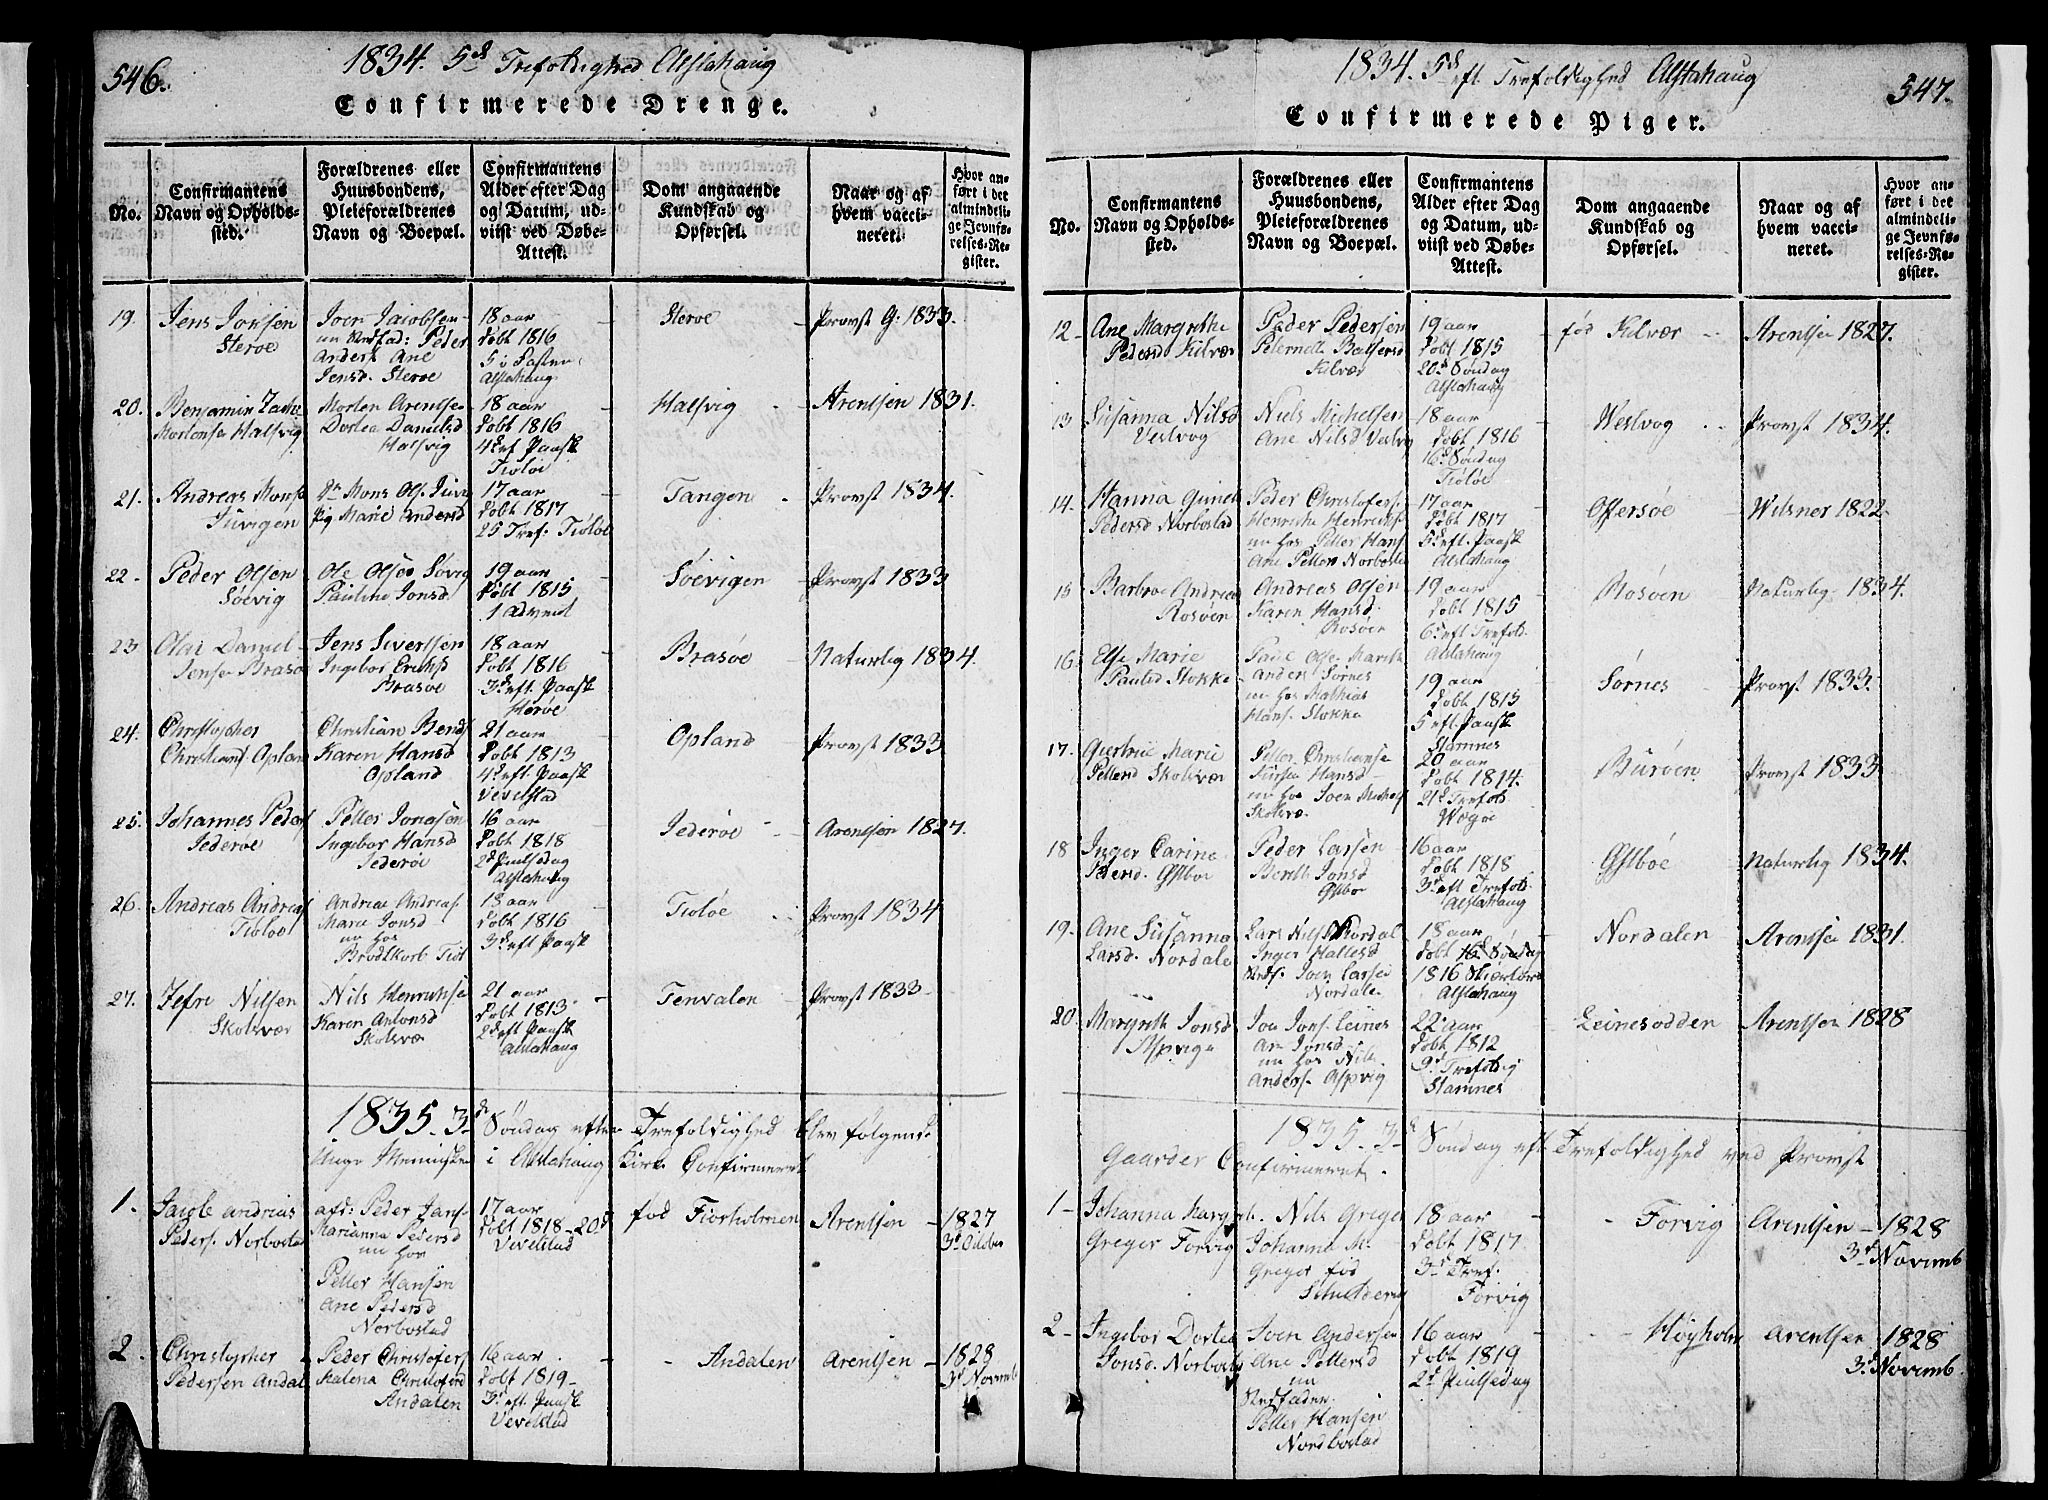 546.
1834. 5d Trefoldighed Alstahaug
Confirmerede Drenge.
No.
Confirmantens
Navn og Opholds-
sted.
Forældrenes eller
Huusbondens,
Pleieforældrenes
Navn og Boepæl.
Confirmantens
Alder efter Dag
og Datum, ud-
viist ved Døbe-
Attest.
Dom angaaende
Kundskab og
Opførsel.
Naar og af
hvem vacci-
neret.
Hvor an-
ført i det
almindeli-
ge Jevnfø-
relses-Re-
gister.
19. Jens Jonsen
Sterøe
Joen Jacobsen
Peder
Anders. Ane
Jensd. Sterøe
18 aar
døbt 1816
5 i Fasten
Alstahaug
Sterøe
Provst G. 1833.
20. Benjamin
Mortensen Halsvig
Morten Arentsen
Dortea Danielsd
Halsvig
18 aar
døbt 1816
4d ef. Paask
Tiøtøe
Halsvig
Arentsen 1831.
21. Andreas Monsen
Juvigen
Mons Ols.
Pig Marie Andersd
17 aar
døbt 1817
25 Tref. Tiøtøe
Tangen
Provst 1834.
22. Peder Olsen
Søevig
Ole Olsen Søvig
Pauline Jonsd.
19 aar
døbt 1815
1 Advent
Søevigen
Provst 1833
23. Olai Daniel
Jensen Brasøe
Jens Sivertsen
Ingebor Eriksd
Brasøe
18 aar
døbt 1816
3d eft. Paask
Herøe
Brasøe
Naturlig 1834.
24. Christopher
Christians. Opland
Christian Bends
Karen Hansd
Opland
21 aar
døbt 1813
4d eft. Paask
Vevelstad
Opland
Provst 1833
25. Johannes Peders
Jederøe
Petter Jonasen
Ingebor Hansd
Jederøe
16 aar
døbt 1818
2d Pintsedag
Alstahaug
Jederøe
Arentsen 1827.
26. Andreas Andreas
Tiøtøe
Andreas Andreas.
Marie Jonsd
nu hos
Brodtkorb Tiøt
18 aar
døbt 1816
3d eft Paask
Tiøtøe
Provst 1834
27. Nilsen
Skolsvær
Nils Henriksen
Karen Antonsd
Skolsvæ
21 aar
døbt 1813
2d eft Paask
Alstahaug
Tenvalen
Provst 1833
1835. 3d Søndag efter Trefoldighed blev følgende
Unge Mennisker i Alstahaug Kirke Confirmeret
1. Jacob Andrias
Peders. Norbostad
afd: Peder Jans.
Marianna Pedersd
nu hos
Petter Hansen
Ane Pedersd
Norbostad
17 aar
døbt 1818 20d
Vevelstad
fød Fiorholmen
Arentsen
1827
3d October
2. Christopher
Pedersen Andal
Peder Christofers
Malena Christoferd
Andalen
16 aar
døbt 1819
3d eft. Paask
Vevelstad
Andalen
Arentsen
1828
3d Novemb
547.
1834. 5d eft Trefoldighed Alstahaug
Confirmerede Piger.
No.
Confirmantens
Navn og Opholds-
sted.
Forældrenes eller
Huusbondens,
Pleieforældrenes
Navn og Boepæl.
Confirmantens
Alder efter Dag
og Datum, ud-
viist ved Døbe-
Attest.
Dom angaaende
Kundskab og
Opførsel.
Naar og af
hvem vacci-
neret.
Hvor an-
ført i det
almindeli-
ge Jevnfø-
relses-Re-
gister.
12. Ane Margrethe
Pedersd Kilvær
Peder Pedersen
Peternelle Baltsersd
Kilvær
19 aar
døbt 1815
20d Søndag
Alstahaug
fød Kilvær
Arentsen 1827.
13 Susanna Nilsd
Vestvog
Niels Michelsen
Ane Nilsd Vestvog
18 aar
døbt 1816
16d Søndag
Tiøtøe
Westvog
Provst 1834.
14. Hanna
Pedersd Norbostad
Peder Christofers.
Henrikke Henriks.
nu hos Petter Hans.
Ane Petters Norbostad
17 aar
døbt 1817
5d eft. Paask
Alstahaug
Offersøe
Wilsner 1822
15 Barbroe Andreas
Rosøen
Andreas Olsen
Karen Hansd.
Rosøen
19 aar
døbt 1815
6d eft Trefold.
Alstahaug
Rosøen
Naturlig 1834.
16. Else Marie
Paulsd Stokke
Paul Olsen Marith
Anders Sørnes
nu hos Mathias
Hans. Stokke
19 aar
døbt 1815
5 eft. Paask
Stamnes
Sørnes
Provst 1833.
17. Giertrue Marie
Pettersd Skolsvær
Petter Christiansen
Hansd
nu hos Joen Michels
Skolsvæ.
20 aar
døbt 1814.
21d Trefold
Wegøe
Burøen
Provst 1833
18 Inger Carina
Pedersd. Østboe
Peder Larsen
Berith Jonsd
Østboe
16 aar
døbt 1818
3d eft Trefold.
Alstahaug
Østbøe
Naturlig 1834.
19. Ane Susanna
Larsd. Nordalen
Lars Nils. Nordal
Inger Hallesd
Joen Larsen
Nordale.
18 aar
døbt 16d Søndag
1816
Alstahaug
Nordalen
Arentsen 1831.
20. Margreth Jonsd
Aspvige
Joen Jons. Leines
An Jonsd
nu hos Nils
Anders. Aspvig
22 aar
døbt 1812
9d Trefoldig
Stamnes
Leinesodden
Arentsen 1828
1835. 3d Søndag eft Trefoldighed ved Provst
Gaarder Confirmeret.
1 Johanna Margreth.
Greger Forvig
Nils Greger
Johanna M.
Greger fød
18 aar
døbt 1817
3d Tref.
Forvig
Forvig
Arentsen
1828
3d Novemb
2 Ingebor Dortea
Jonsd. Norbosta
Joen Andersen
Ane Pettersd
nu
Petter Hansen
Nordbostad
16 aar
døbt 1819
2d Pintsedag
Høyholm
Arentsen
1828
3d Novemb.